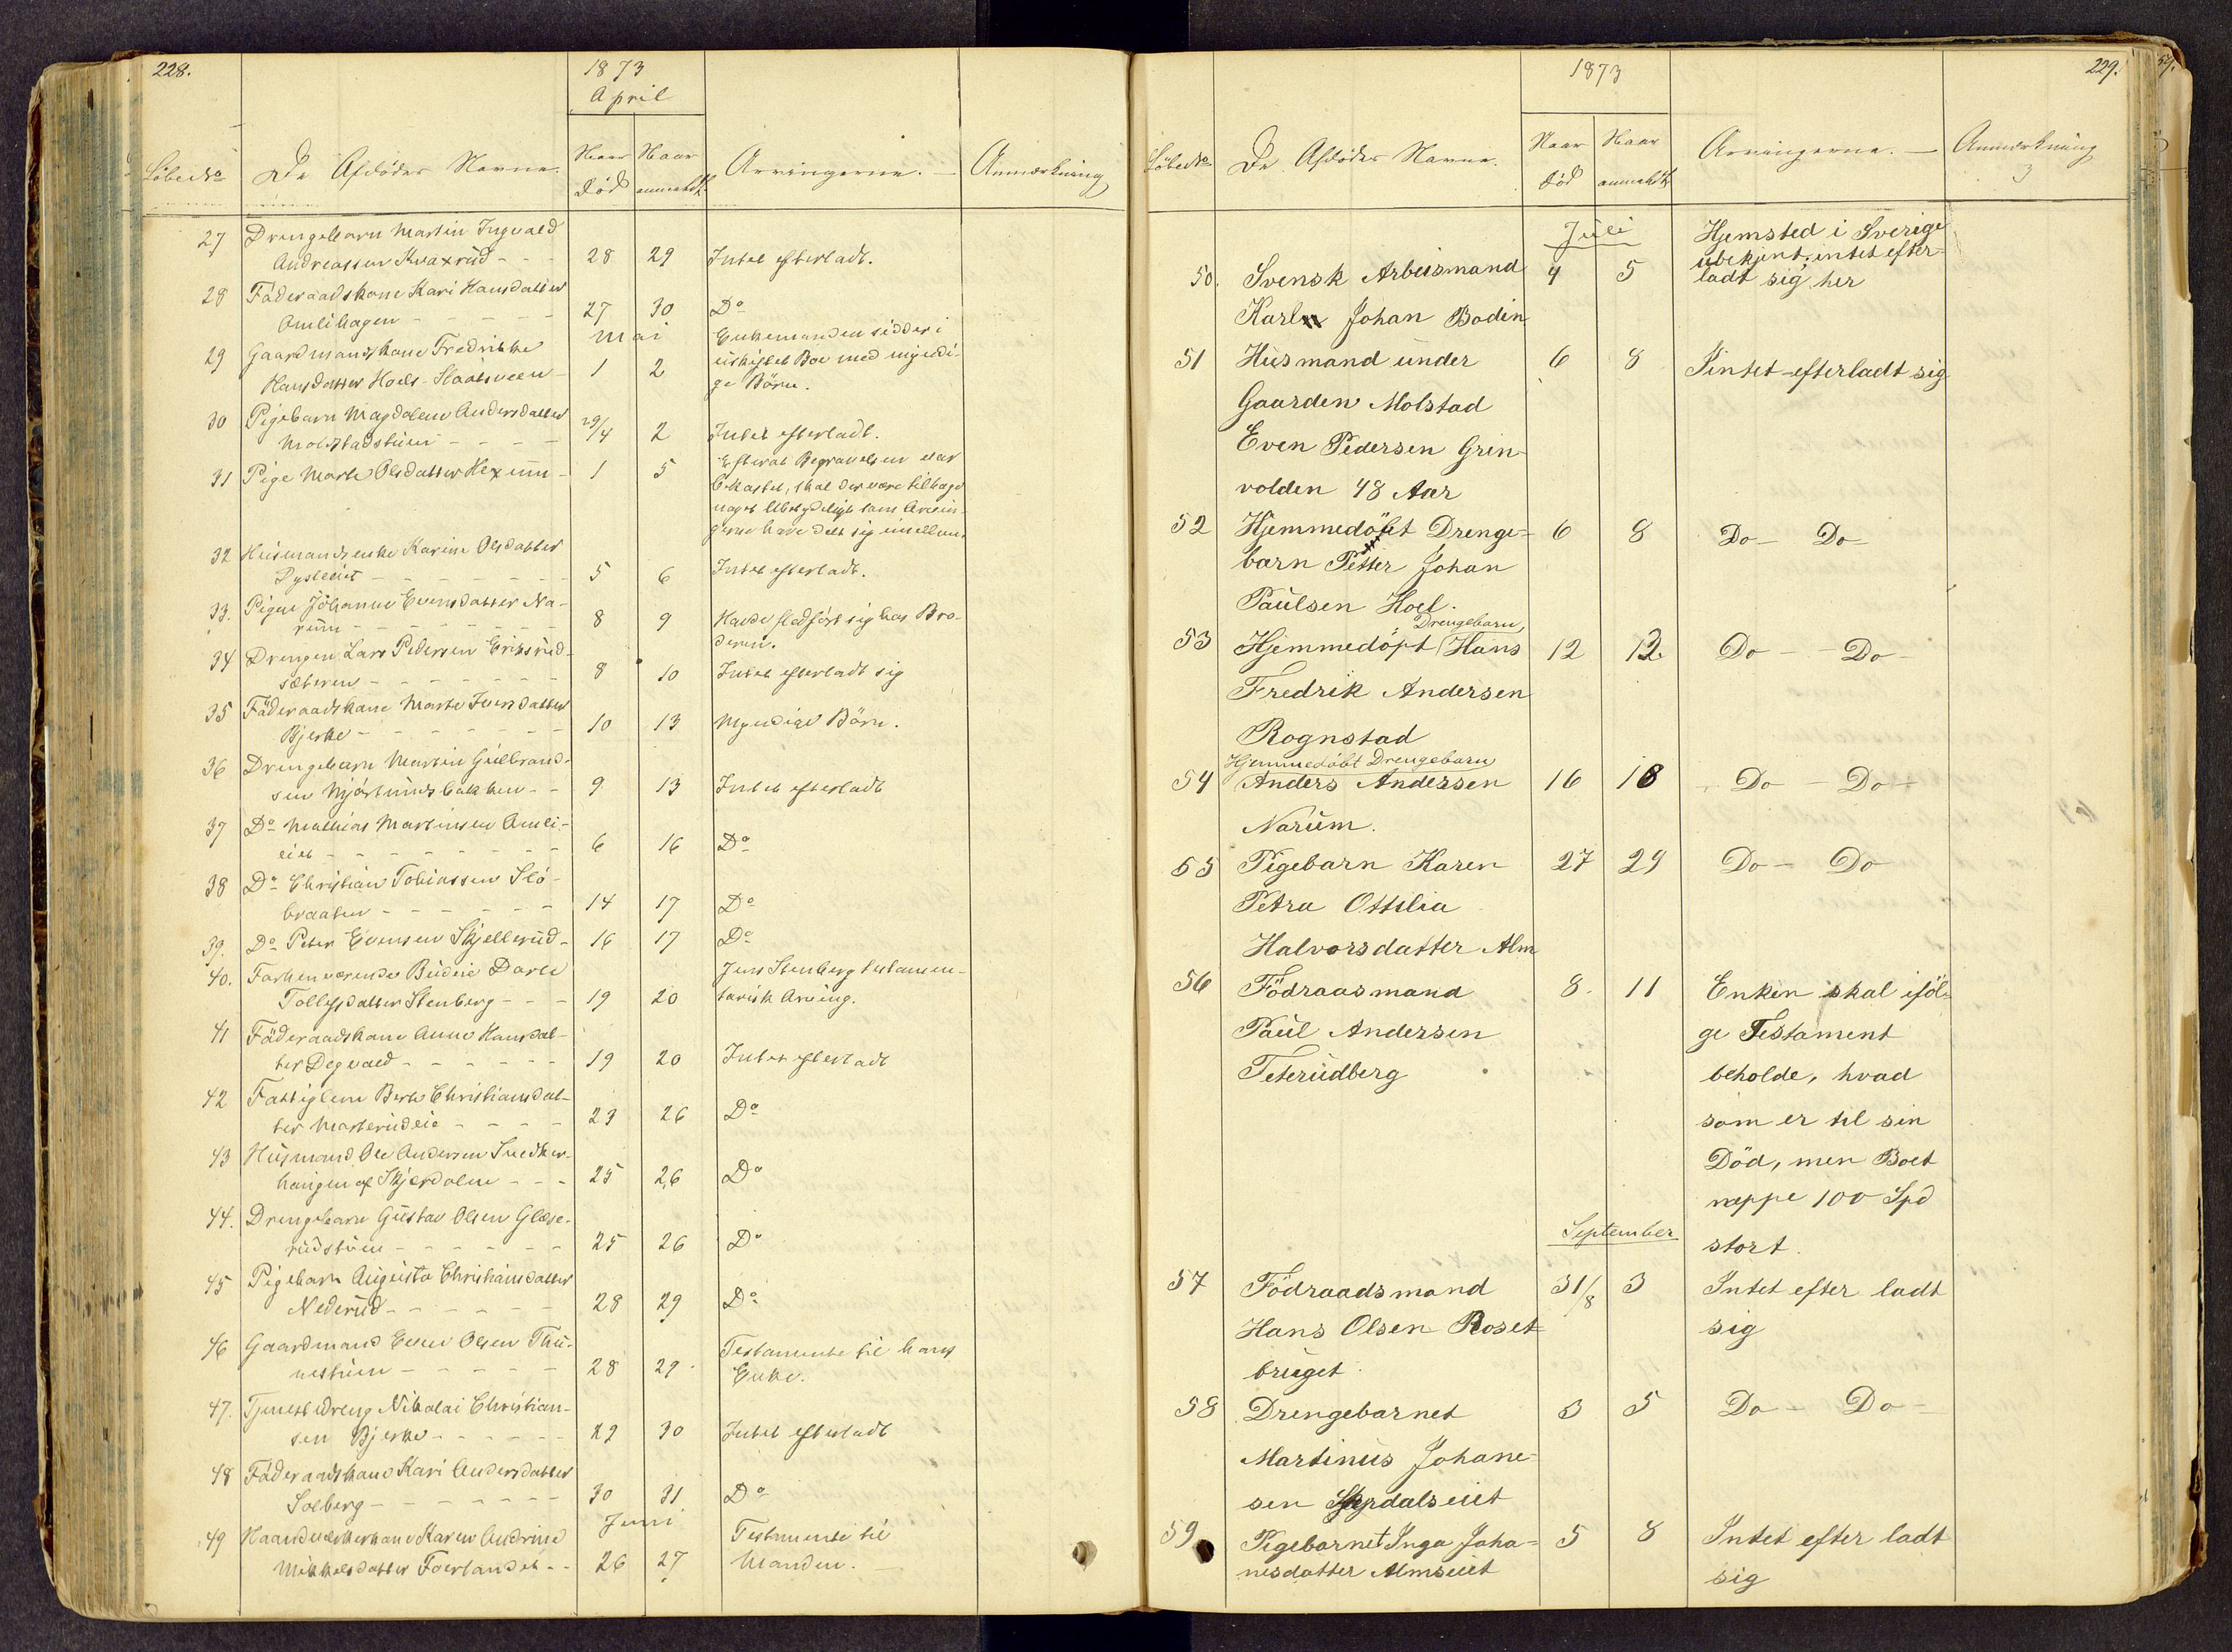 228.
1873
April
LöbeNo De Afdödes Navne. Naar Död Naar anmeldt Arvingerne. — Anmærkning
27 Drengebarn Martin Ingvald
Andreassen Kvaxrud - - - 28 29 Intet efterladt.
28 Föderaadskone Kari Hansdatter
Amlihagen - - - - - 27 30 Do
Mai
29 Gaardmandskone Fredrikke
Hansdatter Hoels-Slaatsveen - 1 2 Enkemanden sidder i
uskiftet Boe med myndi-
ge Börn.
30 Pigebarn Magdalene Andersdatter
Molstadstuen - - - - 29/4 2 Intet efterladt.
31 Pige Marte Olsdatter Hexum - 1 5 Efterat Begravelsen var
bekostet, skal der være tilbage
noget Ubetydeligt som Arvin-
gerne have delt sig imellem.
32 Husmandsenke Karine Olsdatter
Lysleiet - - - - - - - 5 6 Intet efterladt.
33. Pigen Johanne Evensdatter Na-
rum - - - - - - - 8 9 Havde fledfört sig hos Bro-
deren.
34 Drengen Lars Pedersen Eriksrud-
sæteren - - - - - - 8 10 Intet efterladt sig
35 Föderaadskone Marte Iversdatter
Bjerke - - - - - - - 10 13 Myndige Börn.
36 Drengebarn Martin Gulbrand-
sen Mjörlundsbakken - - 9 13 Intet efterladt
37 Do Mathias Martinsen Amli-
eiet - - - - - - - - 6 16 Do
38 Do Christian Tobiassen Slö-
braaten - - - - - - 14 17 Do
39. Do Peter Evensen Skjellerud - 16 17 Do
40. Forhenværende Budeie Dorte
Tollefsdatter Stenberg - - - 19 20 Jens Stenberg testamen-
tarisk Arving.
41 Föderaadskone Anne Hansdat-
ter Degvald - - - - - - 19 20 Intet efterladt
42 Fattiglem Berte Christiansdat-
ter Marterudeie - - - - 23 26 Do
43 Husmand Ole Andersen Snedker-
haugen af Skjerdalen - - - 25 26 Do
44. Drengebarn Gustav Olsen Glæse-
rudstuen - - - - - - 25 26 Do
45 Pigebarn Augusta Christiansdatter
Nederud - - - - - - 28 29 Do
46 Gaardmand Even Olsen Thu-
nestuen - - - - - 28 29 Testamente til hans
Enke.
47. Tjenestedreng Nikolai Christian-
sen Bjerke - - - - - - 29 30 Intet efterladt
48 Föderaadskone Kari Andersdatter
Solberg - - - - - - - 30 31 Do
Juni
49 Haandverkerkone Karen Andrine
Mikkelsdatter Foerlandet - - 26 27 Testamente til
Manden. —
229.
1873
LöbeNo De Afdödes Navne. Naar död Naar anmeldt Arvingerne. — Anmærkning
Juli
50. Svensk Arbeismand 4 5 Hjemsted i Sverige
ubekjent, intet efter-
ladt sig her
Karl Johan Bodin
51 Husmand under 6 8 Iintet efterladt sig
Gaarden Molstad
Even Pedersen Grin-
volden 48 Aar
52 Hjemmedöbt Drenge- 6 8 Do - Do -
barn Petter Johan
Paulsen Hoel.
Drengebarn,
53 Hjemmedöpt Hans 12 12. Do - - Do -
Fredrik Andersen
Rognstad
Hjemmedöbt Drengebarn
54 Anders Andersen 16 18 Do - Do -
Narum.
55 Pigebarn Karen 27 29 Do - Do
Petra Ottilia
Halvorsdatter Alm
56 Födraasmand 8. 11 Enken skal iföl-
Paul Andersen ge Testament
Teterudberg beholde, hvad
som er til sin
Död, men Boet
næppe 100 Spd
September
stort.
57 Födraadsmand 31/8 3 Intet efter ladt
Hans Olsen Roset- sig
bruget.
58 Drengebarnet 3 5 Do - Do -
Martinus Johane-
sen
59 Pigebarnet Inga Joha- 5 8 Intet efter ladt
nesdatter Almseiet sig